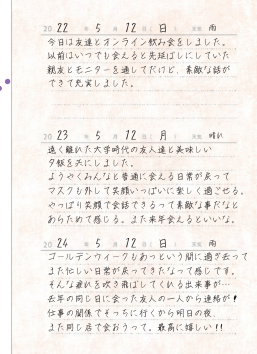 20 22 年 5 月 12 日( 日 ) 天気 雨
今日は友達とオンライン飲み会をしました。
以前はいつでも会えると先延ばしにしていた
親友とモニターを通してだけど、素敵な話が
できて充実しました。
20 23 年 5 月 12 日( 月 ) 天気 晴れ
遠く離れた大学時代の友人達と美味しい
夕飯を共にしました。
ようやくみんなと普通に会える日常が戻って
マスクも外して笑顔いっぱいに楽しく過ごせる。
やっぱり笑顔で会話できるって素敵な事だなと
あらためて感じる。また来年会えるといいな。
20 24 年 5 月 12 日( 日 ) 天気 雨
ゴールデンウイークもあっという間に過ぎ去って
また忙しい日常が戻ってきたなって感じです。
そんな疲れを吹き飛ばしてくれる出来事が…
去年の同じ日に会った友人の一人から連絡が!
仕事の関係でそっちに行くから明日の夜、
また同じ店で会おうって。最高に嬉しい!!